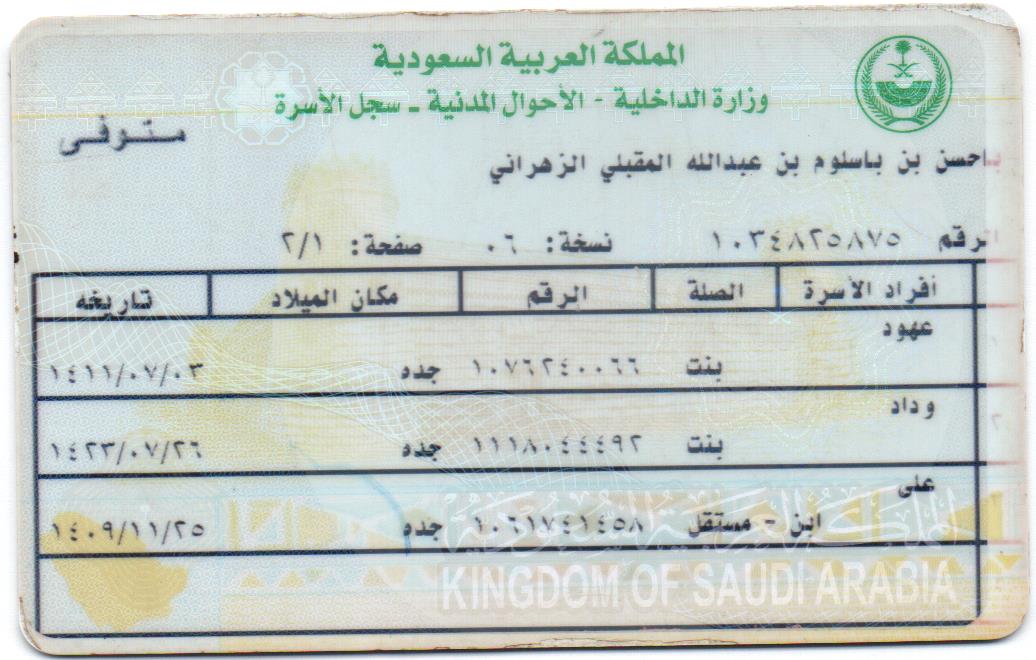 المملكة العربية السعودية
وزارة الداخلية - الأحوال المدنية - سجل الأسرة
متوفى
باحسن بن باسلوم بن عبدالله المقبلي الزهراني
الرقم ١٠٣٤٨٢٥٨٧٥ نسخة: ٠٦ صفحة: ٢/١
أفراد الأسرة الصلة الرقم مكان الميلاد تاريخه
عهود
١ بنت ١٠٧٦٢٤٠٠٦٦ جده ١٤١١/٠٧/٠٣
وداد
٢ بنت ١١١٨٠٤٤٤٩٢ جده ١٤٢٣/٠٧/٢٦
على
ابن - مستقل ١٠٦١٧٤١٤٥٨ جده ١٤٠٩/١١/٢٥
المملكة العربية السعودية
KINGDOM OF SAUDI ARABIA